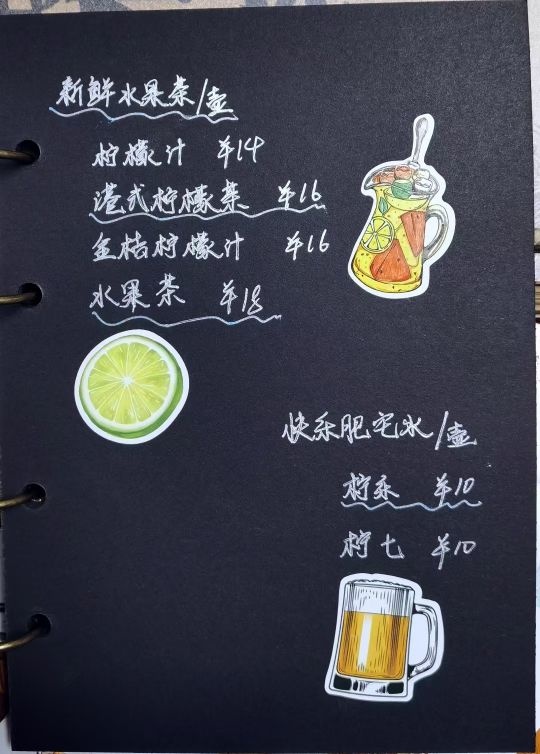 新鲜水果茶/壶
柠檬汁 ¥14
港式柠檬茶 ¥16
金桔柠檬汁 ¥16
水果茶 ¥18
快乐肥宅水/壶
柠乐 ¥10
柠七 ¥10